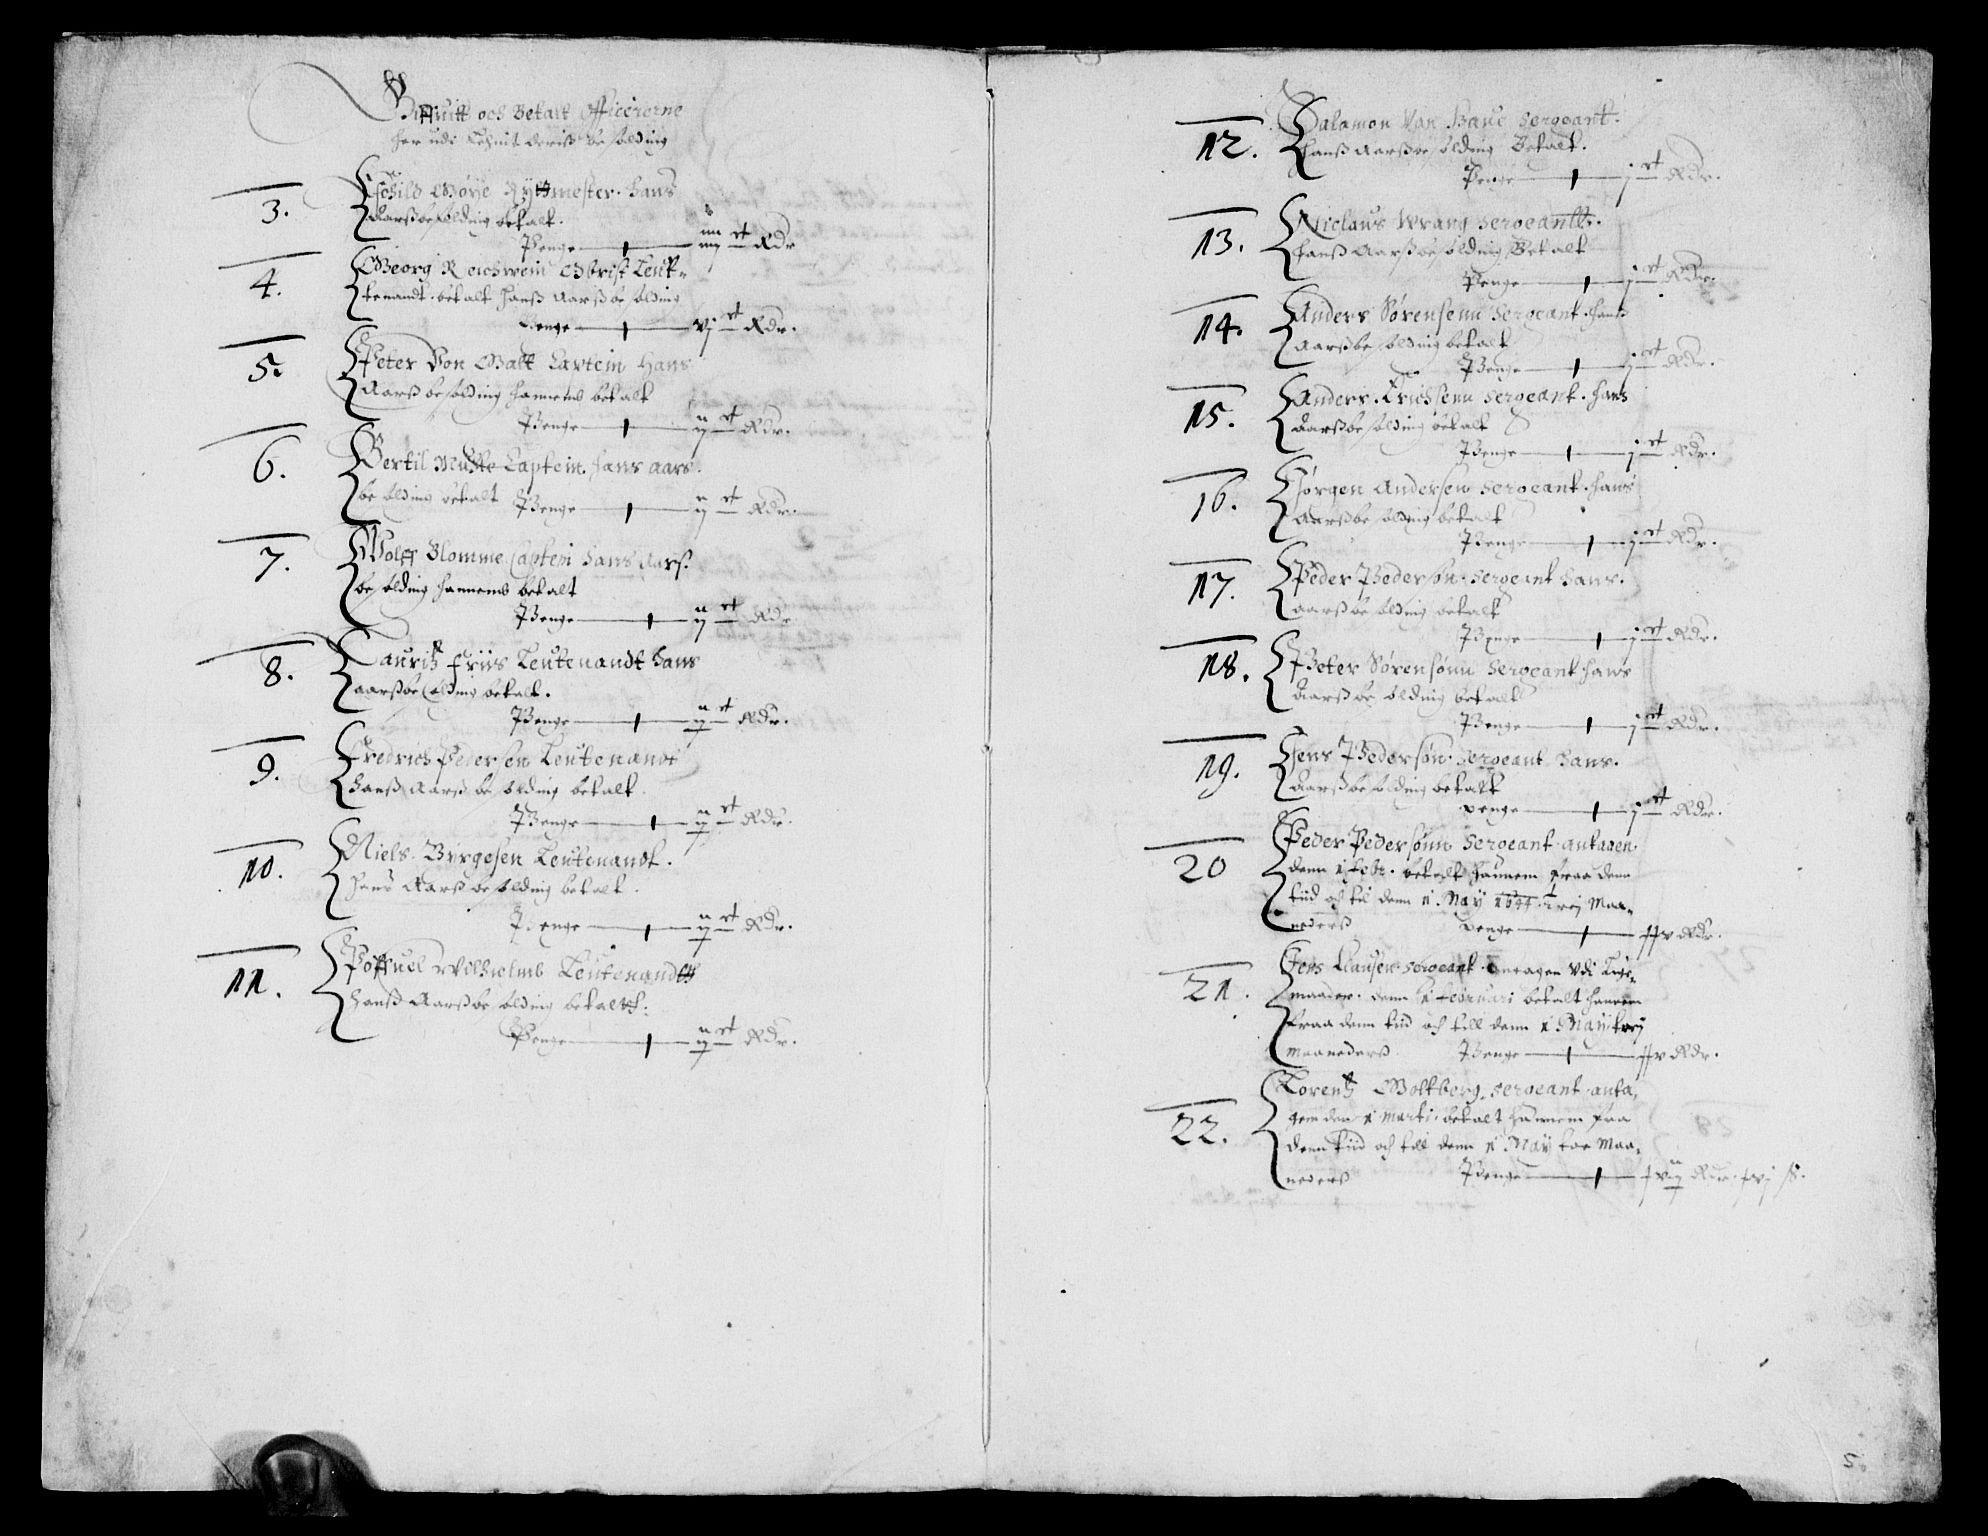 Giffuitt och Betalt Officirerne
her udi Lehnit deris besolding
3. Eschild Gøye Rytmester. hans
Aarsbesolding bekalt.
Penge iiii ct Rdr
4. Georg Reichwein Obrist Leut-
tenandt. betalt hanß Aarßbesolding
Penge vj ct Rdr.
5. Peter Von Galt Captein Hans
Aarß besolding hannem betalt
Penge ij ct Rdr.
6. Bertil Captein hans aars.
besolding betalt Penge ij ct Rdr.
7. Wolff Blomme Captein hans Aarß.
besolding hannem betalt
Penge ij ct Rdr.
8. Lauritz Friis Leutenandt hans
aarßbesolding betalt.
Penge ij ct Rdr.
9. Fredrich Pedersen Leutenandt
hanß Aarß besolding betalt.
Penge ij ct Rdr.
10. Niels Byrgesen Leutenandt.
hans Aarß besolding betalt.
Penge ij ct Rdr.
11. Poffuel Wilhelmb Leutenandtt
hanß Aarßbesolding betaltt:
Penge ij ct Rdr.
12. Salamon Van Sergeant.
hanß Aarßbesolding Betalt.
Penge j ct Rdr.
13. Niclaus Wrang Sergeantt.
hanß Aarßbesolding Betalt
Penge j ct Rdr.
14. Anders Sørensenn Sergeant. hans
Aarßbesolding betalt
Penge j ct Rdr.
15. Anders. Erichsenn Sergeant. hans
Aarßbesolding betalt
Penge j ct Rdr.
16. Jørgen Andersen Sergeant. hans
Aarßbesolding betalt
Penge j ct Rdr.
17. Peder Pedersøn. Sergeant hans.
aarßbesolding betalt
Penge j ct Rdr.
18. Peter Sørensønn Sergeant hans
Aarßbesolding betalt
Penge j ct Rdr.
19. Jens Pedersøn. Sergeant hans.
Aarßbesolding betalt
Penge j ct Rdr.
20 Peder Pedersønn Sergeant. antagen
denn 1 Febr. betalt hannem fraa denn
tiid och til denn 1. May 1644. trej Maa-
nederß Penge xxv Rdr.
21. Jens Clausen Sergeant. antagen Vdi
denn 1 Februari betalt hannem
fraa denn tiid och till denn 1 May trej
maanederß Penge xxv Rdr.
22. Lorentz Goltberg. Sergeant. anta,
gen den 1 Marti. betalt hannem fraa
denn tiid och till denn 1 May toe Maa,
nederß Penge xvj Rdr. xvj ß.
5